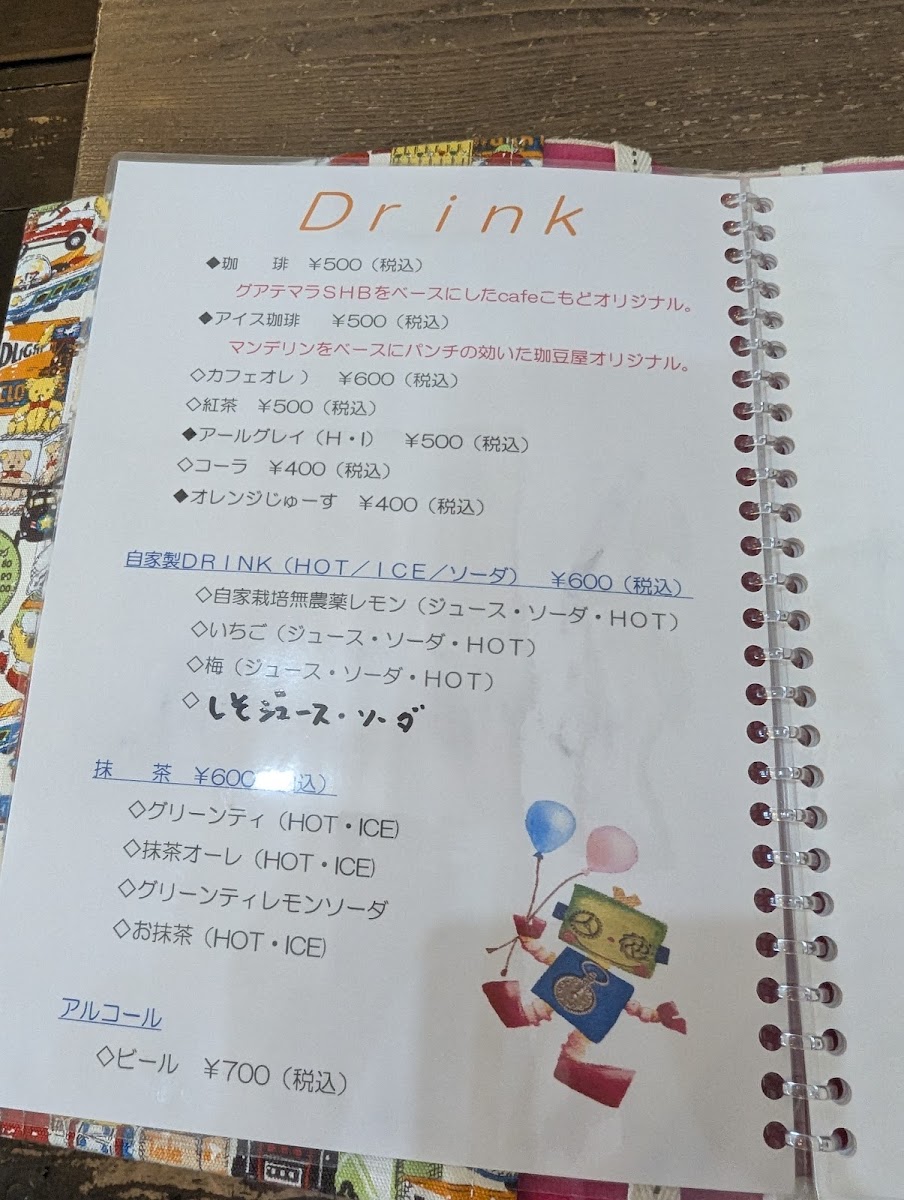 Drink
◆珈　琲　¥500（税込）
グアテマラSHBをベースにしたcafeこもどオリジナル。
◆アイス珈琲　¥500（税込）
マンデリンをベースにパンチの効いた珈豆屋オリジナル。
◇カフェオレ）　¥600（税込）
◇紅茶　¥500（税込）
◆アールグレイ（H・I）　¥500（税込）
◇コーラ　¥400（税込）
◆オレンジじゅーす　¥400（税込）
自家製DRINK（HOT／ICE／ソーダ）　¥600（税込）
◇自家栽培無農薬レモン（ジュース・ソーダ・HOT）
◇いちご（ジュース・ソーダ・HOT）
◇梅（ジュース・ソーダ・HOT）
◇しそジュース・ソーダ
抹　茶　¥600（税込）
◇グリーンティ（HOT・ICE）
◇抹茶オーレ（HOT・ICE）
◇グリーンティレモンソーダ
◇お抹茶（HOT・ICE）
アルコール
◇ビール　¥700（税込）